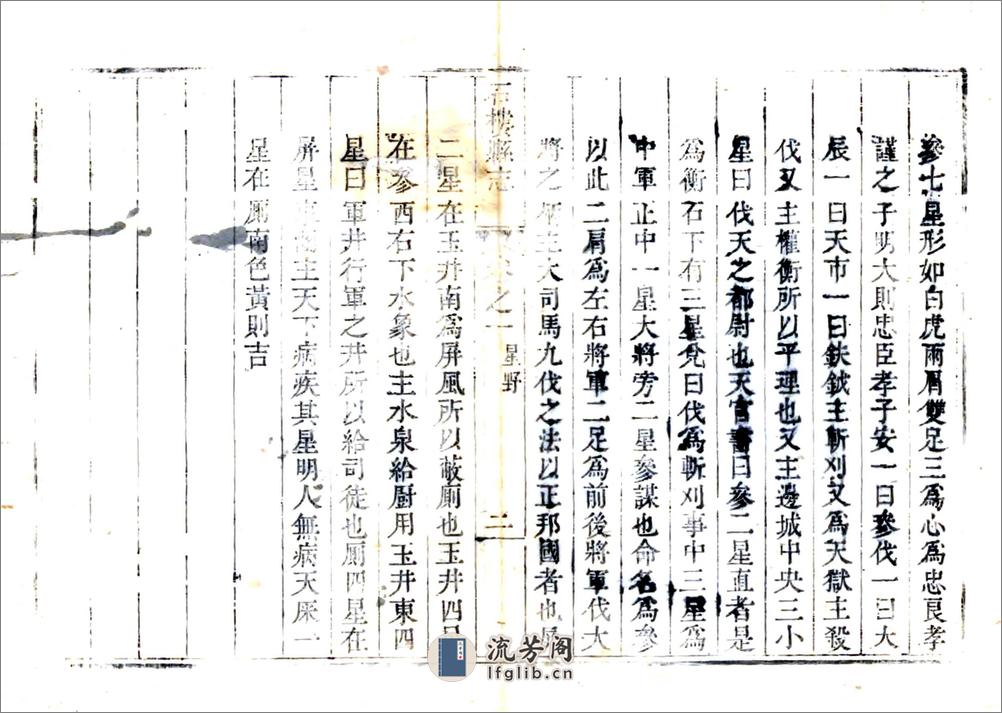 參七星形如白虎兩肩雙足三為心為忠良孝
謹之子明大則忠臣孝子安一曰參伐一曰大
辰一曰天市一曰鈇鉞主斬刈又為天獄主殺
伐又主權衡所以平理也又主邊城中央三小
星曰伐天之都尉也天官書曰參二星直者是
為衡石下有三星兌曰伐為斬刈事中三星為
中軍正中一星大將旁二星參謀也命名為參
以此二肩為左右將軍二足為前後將軍伐大
將之柄主大司馬九伐之法以正邦國者也屏
石樓縣志
卷之一
星野
二
二星在玉井南為屏風所以蔽廁也玉井四星
在參西右下水象也主水泉給厨用玉井東四
星曰軍井行軍之井所以給司徒也廁四星在
屏星主天下病疾其星明人無病天屎一
星在廁南色黃則吉
流芳閣
lfglib.cn